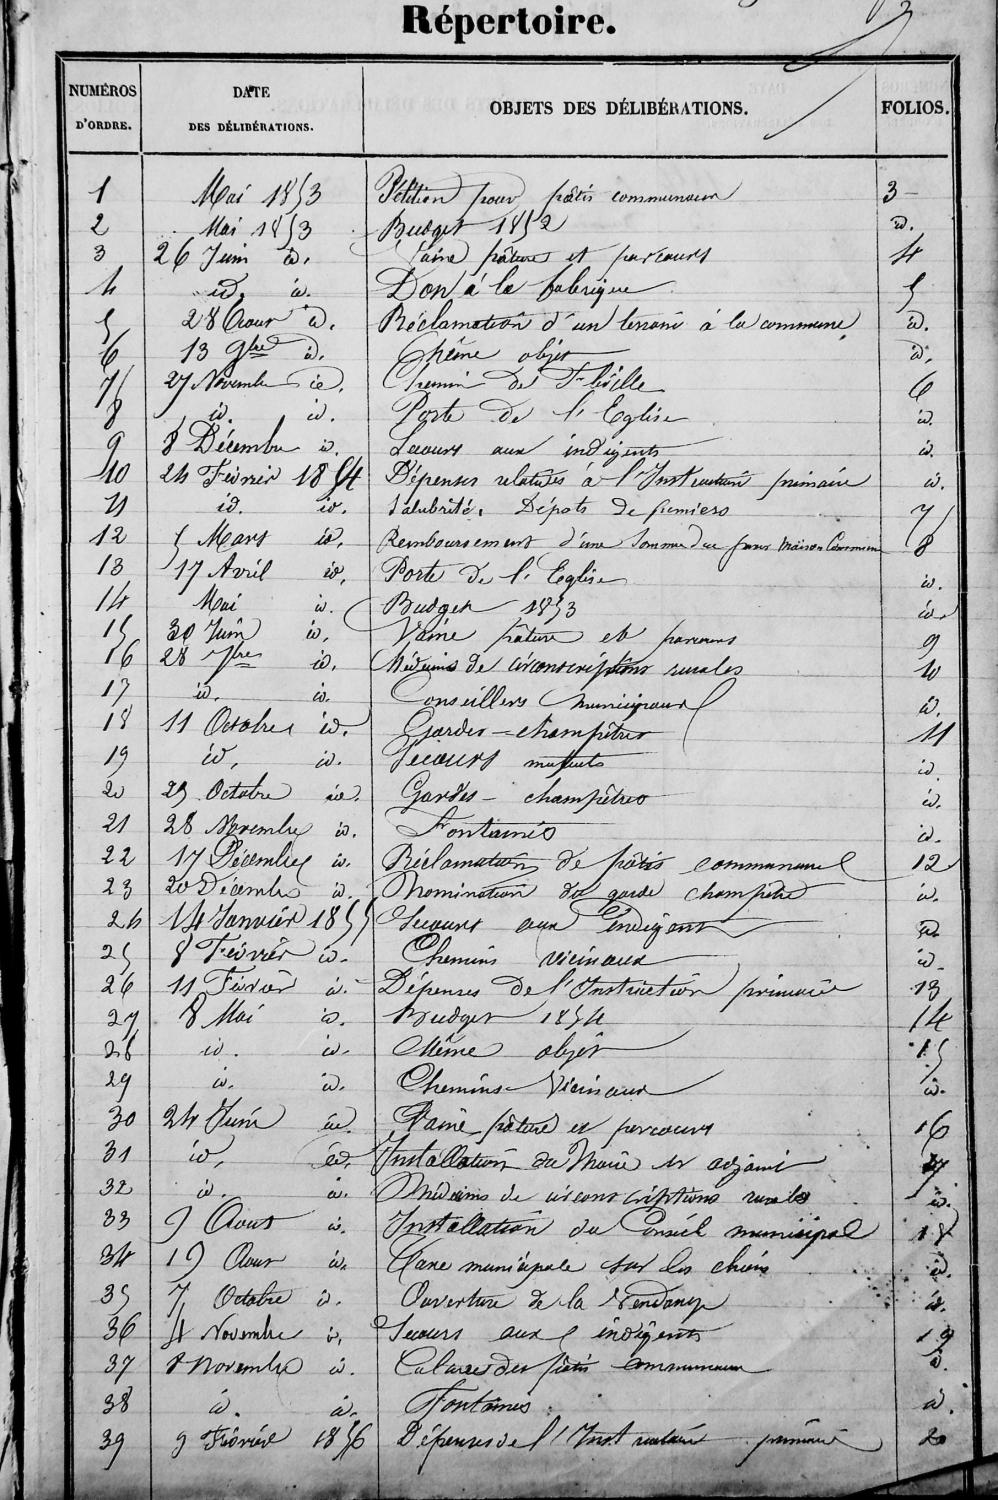 Répertoire.
NUMÉROS D'ORDRE. DATE DES DÉLIBÉRATIONS. OBJETS DES DÉLIBÉRATIONS. FOLIOS.
1 Mai 1853 Pétition pour pâtis communaux 3
2 Mai 1853 Budget 1852 id.
3 26 Juin id. Vaine pâture et parcours 4
4 id. id. Don à la fabrique 5
5 28 Aout id. Réclamation d'un terrain à la commune id.
6 13 9bre id. Même objet id.
7 27 Novembre id. Chemin de 6
8 id. id. Porte de l'Eglise id.
9 8 Décembre id. Secours aux indigents id.
10 24 Février 1854 Dépenses relatives à l'Instruction primaire id.
11 id. id. Salubrité. Dépots de fumiers 7
12 5 Mars id. Remboursement d'une somme due pour Maison Commune 8
13 17 Avril id. Porte de l'Eglise id.
14 Mai id. Budget 1853 id.
15 30 Juin id. Vaine pâture et parcours 9
16 28 7bre id. Médecins de circonscriptions rurales 10
17 id. id. Conseillers municipaux id.
18 11 Octobre id. Gardes-champêtres 11
19 id. id. Secours mutuels id.
20 29 Octobre id. Gardes-champêtres id.
21 28 Novembre id. Fontaines id.
22 17 Décembre id. Réclamation de pâtis communaux 12
23 20 Décembre id. Nomination du garde champêtre id.
24 14 Janvier 1855 Secours aux Indigents id.
25 8 Février id. Chemins vicinaux id.
26 11 Février id. Dépenses de l'Instruction primaire 13
27 8 Mai id. Budget 1854 14
28 id. id. Même objet 15
29 id. id. Chemins Vicinaux id.
30 24 Juin id. Vaine pâture et parcours 16
31 id. id. Installation du Maire et adjoint 17
32 id. id. Médecins de circonscriptions rurales id.
33 9 Aout id. Installation du Conseil municipal 18
34 19 Aout id. Taxe municipale sur les chiens id.
35 7 Octobre id. Ouverture de la Vendange id.
36 4 Novembre id. Secours aux indigents 19
37 8 Novembre id. des pâtis communaux id.
38 id. id. Fontaines id.
39 9 Février 1856 Dépenses de l'Instruction primaire 20